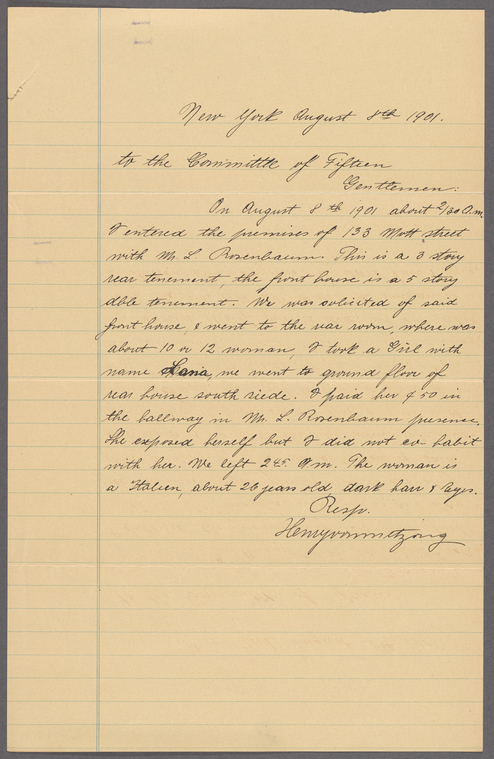 New York August 8th 1901.
to the Committe of Fifteen
Gentlemen:
On August 8th 1901 about 2/30 a.m.
I entered the premises of 133 Mott street
with Mr. L Rosenbaum. This is a 3 story
rear tenement, the front house is a 5 story
dble tenement. We was solicited of said
front house, & went to the rear room, where was
about 10 or 12 woman, I took a Girl with
name we went to ground floor of
rear house south siede. I paid her ¢ 50 in
the hallway in Mr. L. Rosenbaum presence.
She exposed herself but I did not co-habit
with her. We left 2 45. a m. The woman is
a Italien, about 26 years old dark hair & Eyes.
Resp.